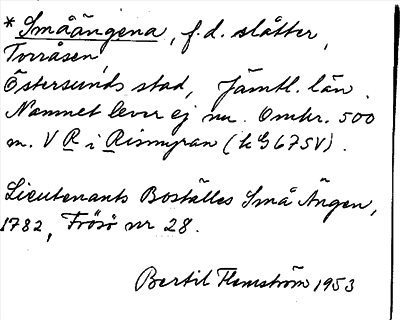 * Småängena, f.d. slåtter,
Torråsen,
Östersunds stad, Jämtl. län.
Namnet lever ej nu. Omkr. 500
m. V R i Rismyran (h G 675V).
Lieutenants Boställes Små Ängen,
1782, Frösö nr 28.
Bertil Flemström 1953